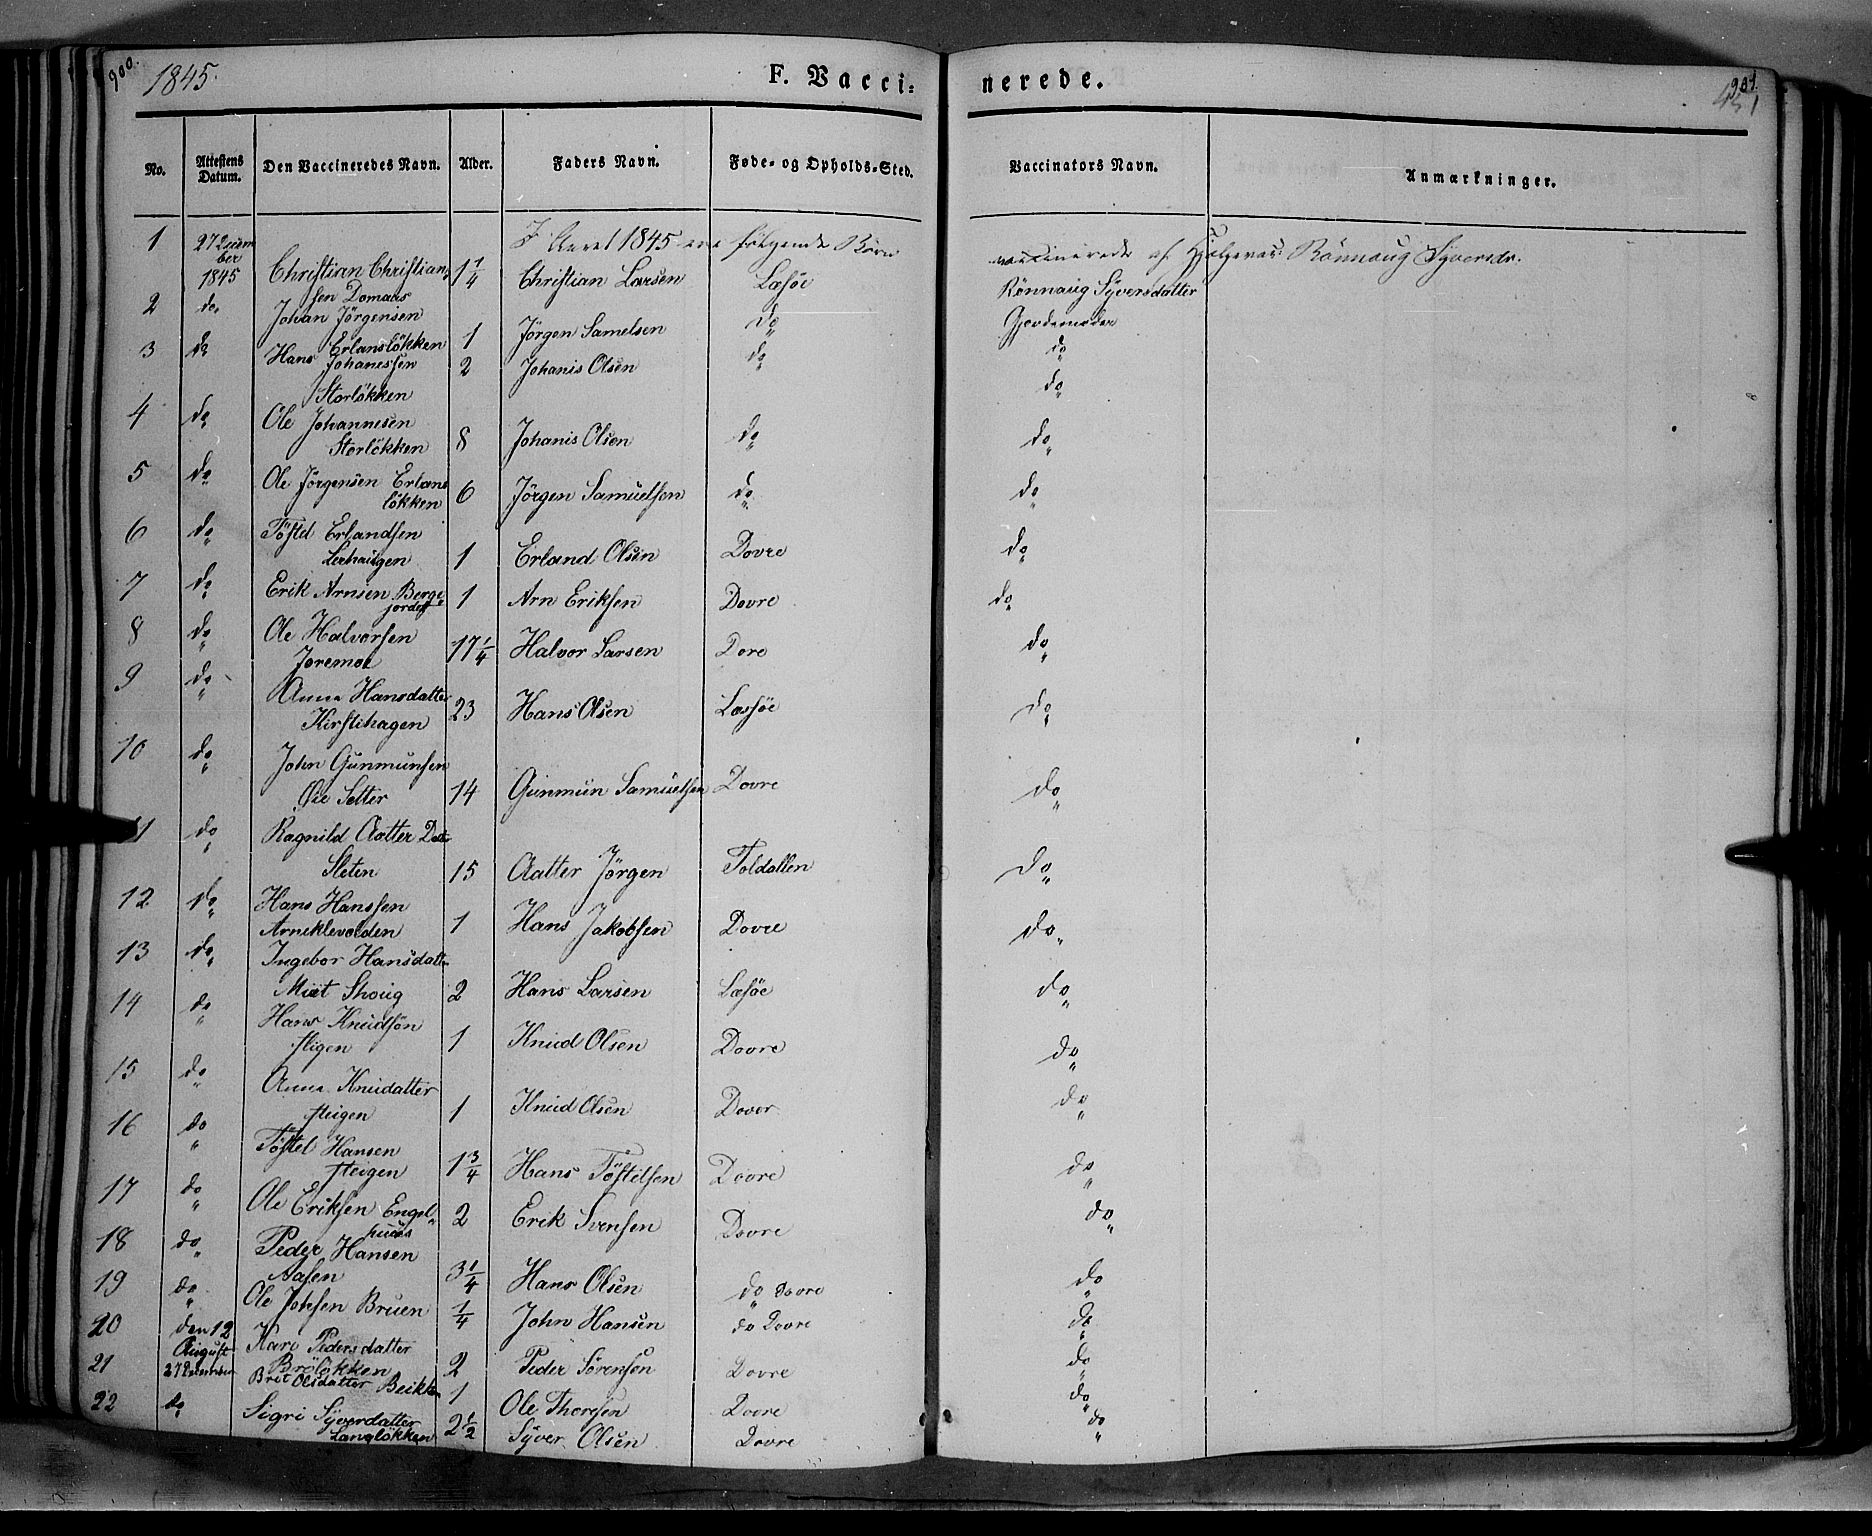 900.
1845.
F. Vacci=
nerede.
901.
451
No.
Attestens Datum.
Den Vaccineredes Navn.
Alder.
Faders Navn.
Føde- og Opholds-Sted.
Vaccinators Navn.
Anmærkninger.
I Aaret 1845 ere følgende Børn vaccinerede af Rönnaug Syversdr.
1 27 December 1845 Christian Christiansen Domaas 1 1/4 Christian Larsen Læsöe Rönnaug Syversdatter
Gjordemoder
2 do. Johan Jörgensen Erlanslökken 1 Jörgen Samelsen do do
3 do Hans Johanessen Storlökken 2 Johanis Olsen do do
4 do Ole Johannesen Storlökken 8 Johanis Olsen do do
5 do Ole Jörgensen Erlanslökken 6 Jörgen Samuelsen do do
6 do Töstel Erlandsen Lerhaugen 1 Erland Olsen Dovre do
7 do Erik Arnsen Berge= jordet 1 Arn Eriksen Dovre do
8 do Ole Halvorsen Joremoe 17 1/4 Halvor Larsen Dore do
9 do Anna Hansdatter Kirstihagen 23 Hans Olsen Læssöe do
10 do John Gunmunsen Öie Setter 14 Gunmun Samuelsen Dovre do
11 do Ragnild Aatter Dat Sleten 15 Aatter Jörgen Foldallen do
12. do Hans Hanssen Arneklevolden 1 Hans Jakobsen Dovre do
13 do Ingebor Hansdatt Miöt Shoug 2 Hans Larsen Læsöe do
14 do Hans Knudsön stigen 1 Knud Olsen Dovre do
15 do Anna Knudatter steigen 1 Knud Olsen Dover do
16 do Töstel Hansen steigen 1 3/4 Hans Töstelsen Dovre do
17 do Ole Eriksen Engel= huus 2 Erik Svensen Dovre do
18 do Peder Hansen Aasen 3 1/4 Hans Olsen do Dovre do
19 do Ole Johsen Bruen 1/4 John Hansen do Dovre do
20 den 12 August Kari Pedersdatter Brölökken 2 Peder Sörensön Dovre do
21 27 December Brit Olsdatter Beikle 1 Ole Thoresen Dovre do
22 do Sigri Syverdatter Langlökken 2 1/2 Syver Olsen Dovre do